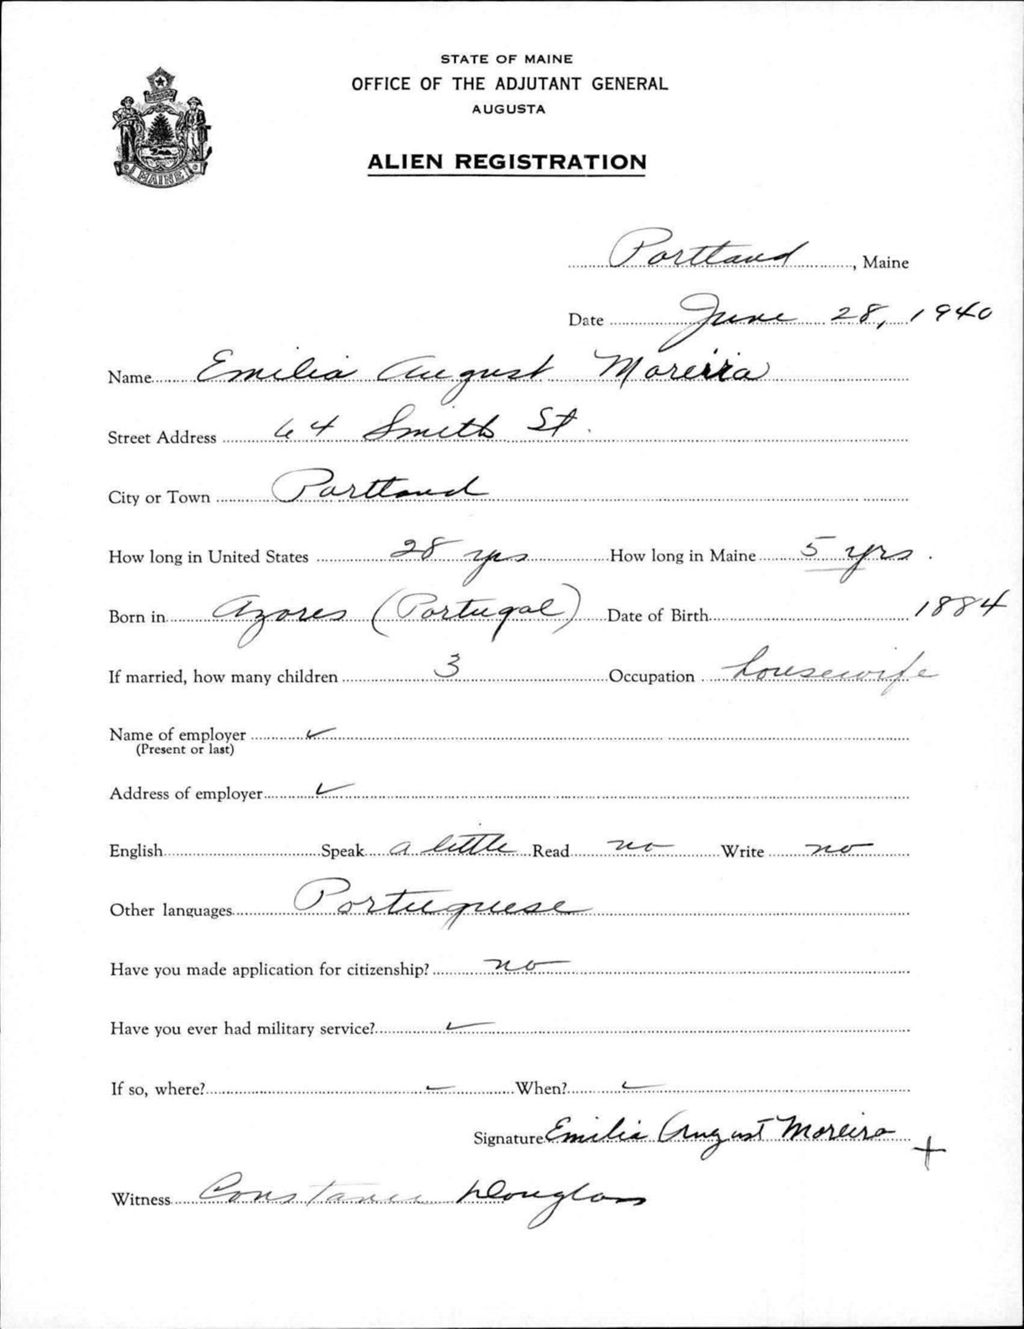 STATE OF MAINE
OFFICE OF THE ADJUTANT GENERAL
AUGUSTA
ALIEN REGISTRATION
MAINE
Portland, Maine
Date June 28, 1940
Name Emilia August Moreira
Street Address 64 Smith St.
City or Town Portland
How long in United States 28 yrs How long in Maine 5 yrs.
Born in Azores (Portugal) Date of Birth 1884
If married, how many children 3 Occupation housewife
Name of employer ✓
(Present or last)
Address of employer ✓
English Speak a little Read no Write no
Other languages Portuguese
Have you made application for citizenship? no
Have you ever had military service? ✓
If so, where? ✓ When? ✓
Signature Emilia August Moreira +
Witness Constance Douglass